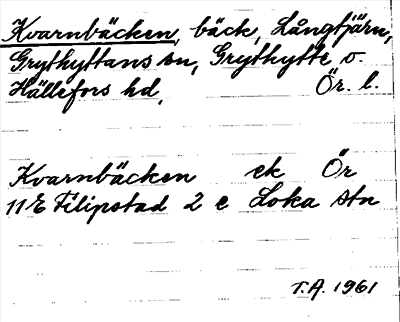 Kvarnbäcken, bäck, Långtjärn,
Grythyttans sn, Grythytte o.
Hällefors hd, Ör. l.
Kvarnbäcken ek Ör
11E Filipstad 2 e Loka stn
T.A. 1961